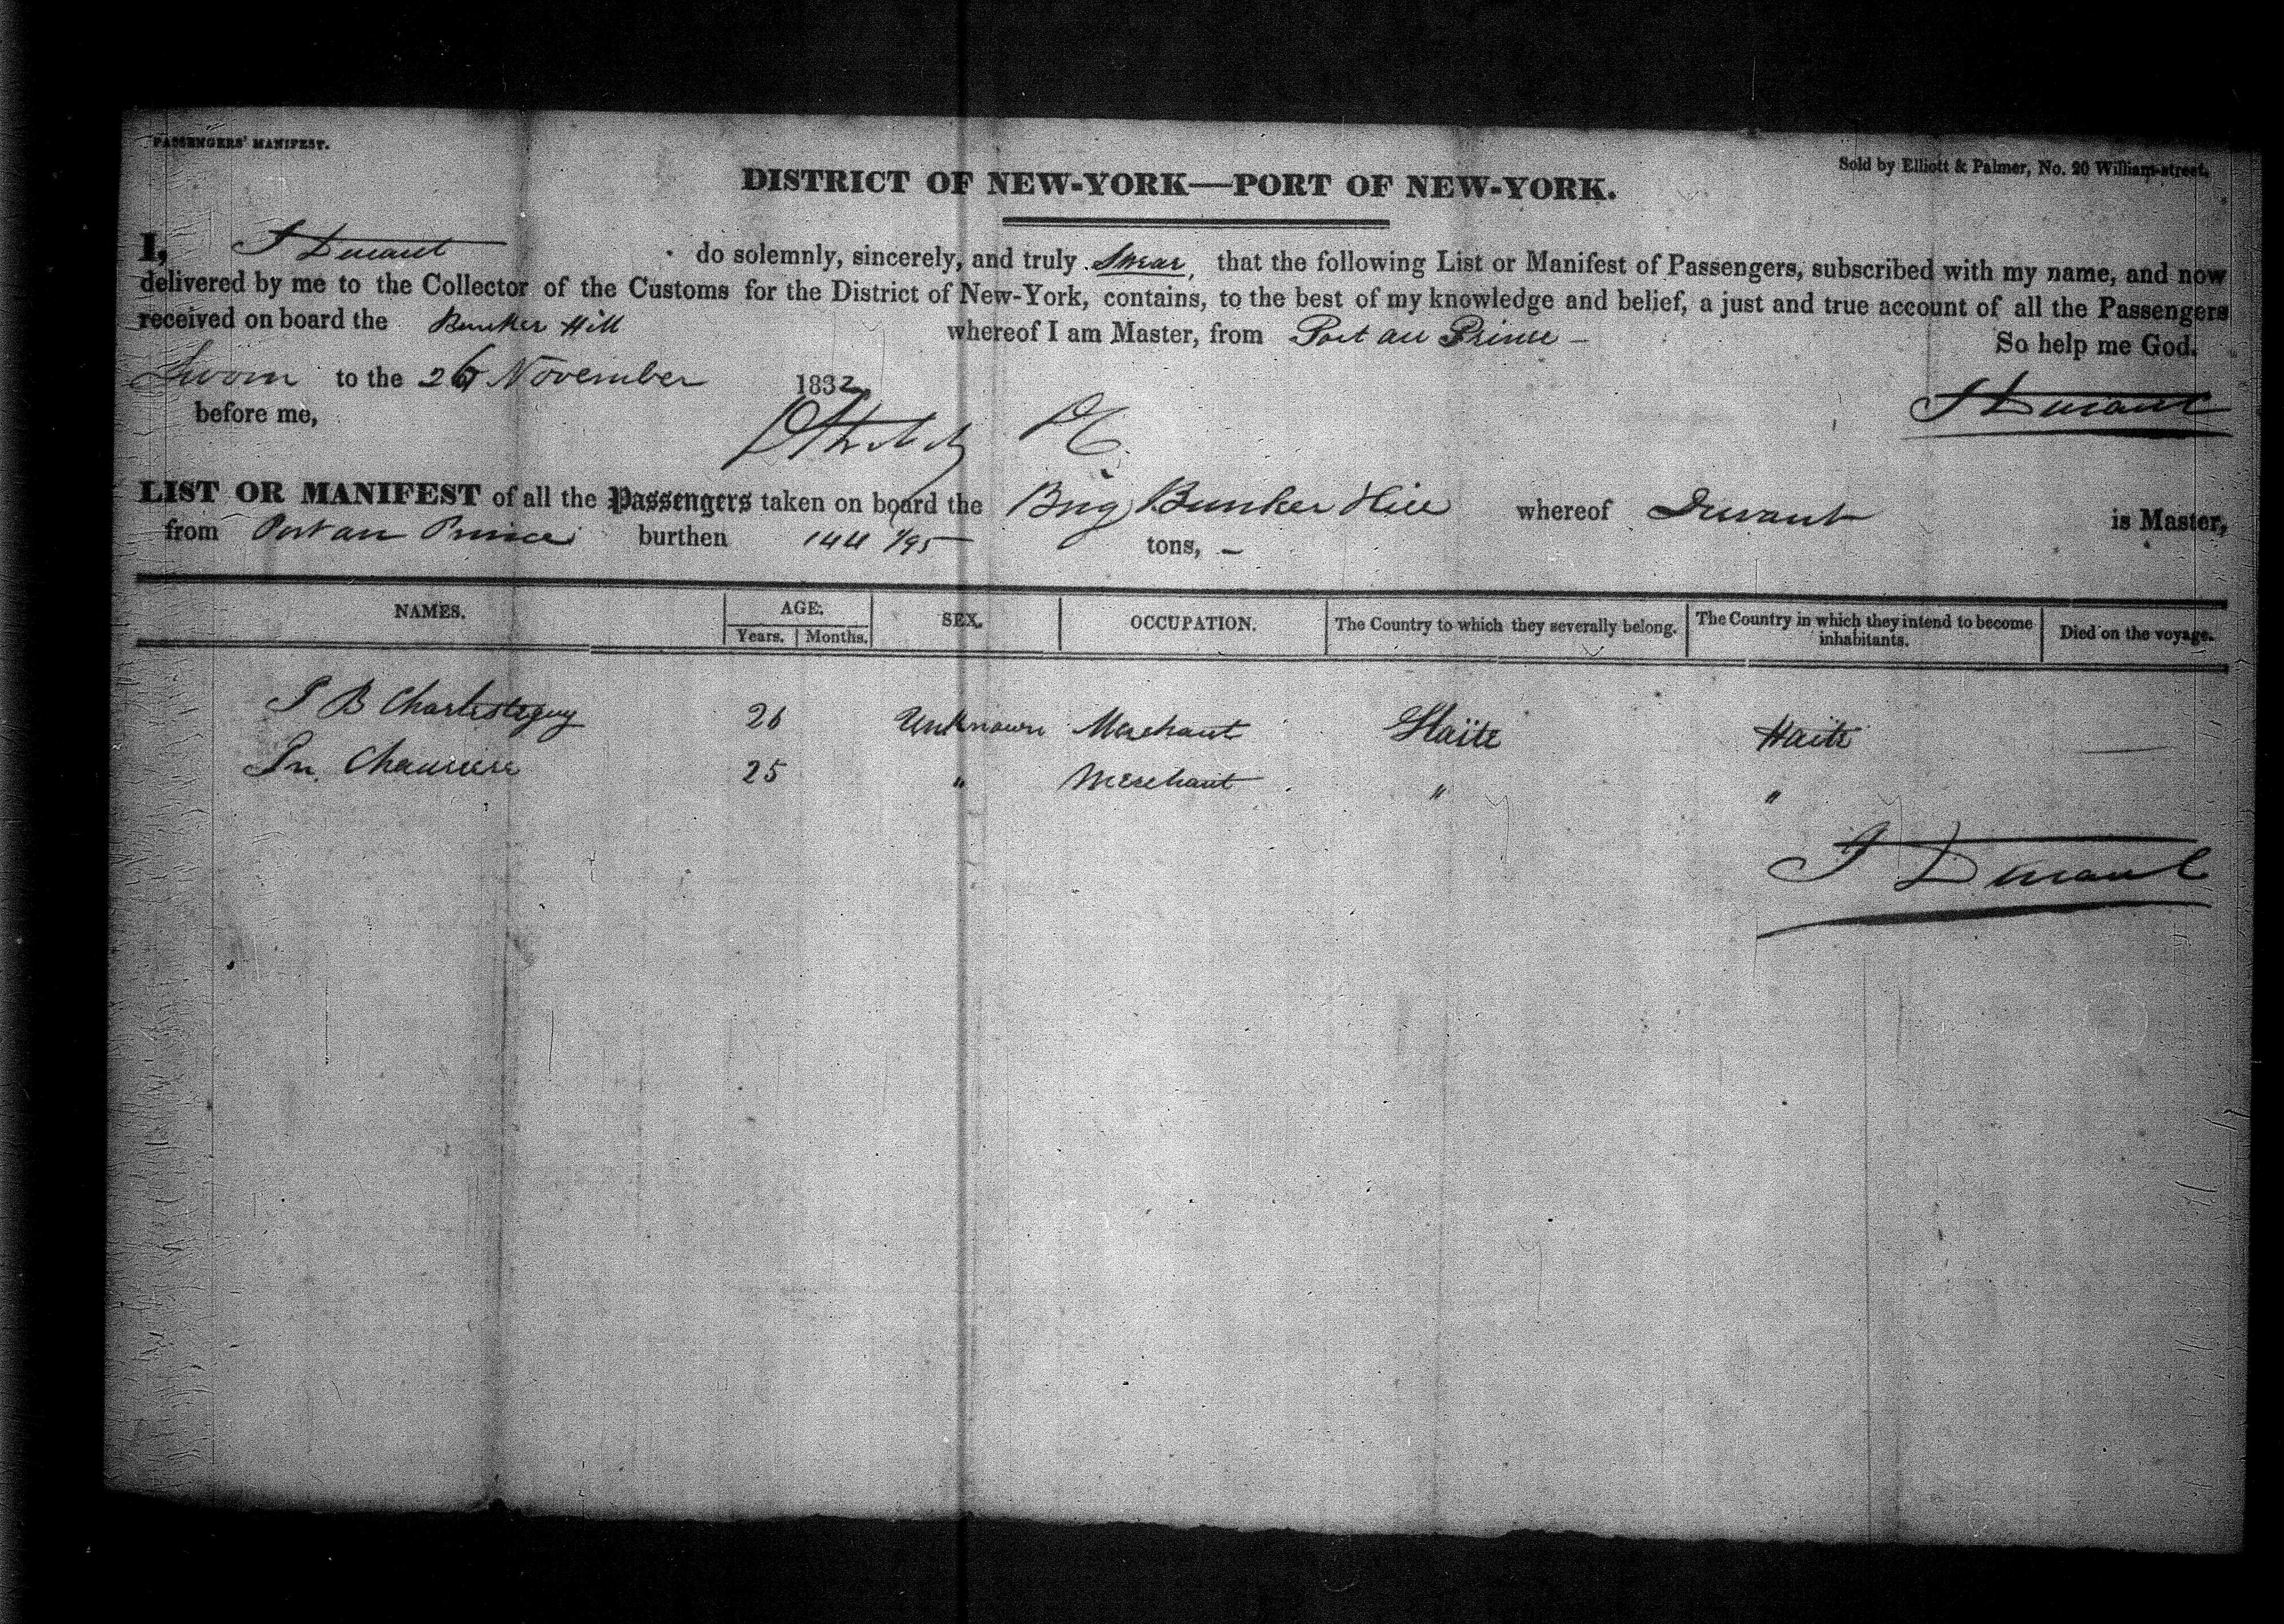 PASSENGERS' MANIFEST.
Sold by Elliott & Palmer, No. 20 William-street.
DISTRICT OF NEW-YORK—PORT OF NEW-YORK.
I, J Durant do solemnly, sincerely, and truly Swear, that the following List or Manifest of Passengers, subscribed with my name, and now
delivered by me to the Collector of the Customs for the District of New-York, contains, to the best of my knowledge and belief, a just and true account of all the Passengers
received on board the Bunker Hill whereof I am Master, from Port au Prince — So help me God.
Sworn to the 26 November 1832
before me,
J Durant
LIST OR MANIFEST of all the Passengers taken on board the Brig Bunker Hill whereof Durant is Master,
from Port au Prince burthen 144 1/95 tons, —
NAMES. AGE. SEX. OCCUPATION. The Country to which they severally belong. The Country in which they intend to become inhabitants. Died on the voyage.
Years. Months.
26 Unknown Merchant Haïte Haïte —
25 " Merchant " "
J Durant